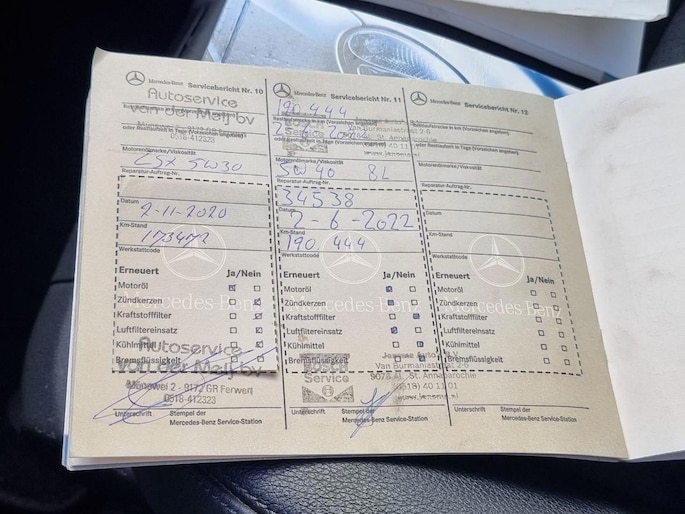 Mercedes-Benz Servicebericht Nr. 10
Autoservice
van der Meij bv
0518-412323
oder Restlaufzeit in Tage (Vorzeichen angeben)
Motorenölmarke/Viskosität
5W30
Reparatur-Auftrag-Nr.
Datum
2-11-2020
Km-Stand
173472
Werkstattcode
Erneuert Ja/Nein
Motoröl
Zündkerzen
Kraftstofffilter
Luftfiltereinsatz
Kühlmittel
Bremsflüssigkeit
Mercedes-Benz
Autoservice
van der Meij bv
2 - 9172 GR Ferwert
0518-412323
Unterschrift Stempel der
Mercedes-Benz Service-Station
Mercedes-Benz Servicebericht Nr. 11
190 444
Restlaufstrecke in km (Vorzeichen angeben)
Van Burmaniastraat 2-6
St. Annaparochie
Motorenölmarke/Viskosität
5W40 8L
Reparatur-Auftrag-Nr.
34538
Datum
2-6-2022
Km-Stand
190 444
Werkstattcode
Erneuert Ja/Nein
Motoröl
Zündkerzen
Kraftstofffilter
Luftfiltereinsatz
Kühlmittel
Bremsflüssigkeit
Mercedes-Benz
BOSCH
Service
Van Burmaniastraat 2-6
9076 AL St. Annaparochie
(0518) 40 11 01
Unterschrift Stempel der
Mercedes-Benz Service-Station
Mercedes-Benz Servicebericht Nr. 12
Restlaufstrecke in km (Vorzeichen angeben)
oder Restlaufzeit in Tage (Vorzeichen angeben)
Motorenölmarke/Viskosität
Reparatur-Auftrag-Nr.
Datum
Km-Stand
Werkstattcode
Erneuert Ja/Nein
Motoröl
Zündkerzen
Kraftstofffilter
Luftfiltereinsatz
Kühlmittel
Bremsflüssigkeit
Mercedes-Benz
Unterschrift Stempel der
Mercedes-Benz Service-Station